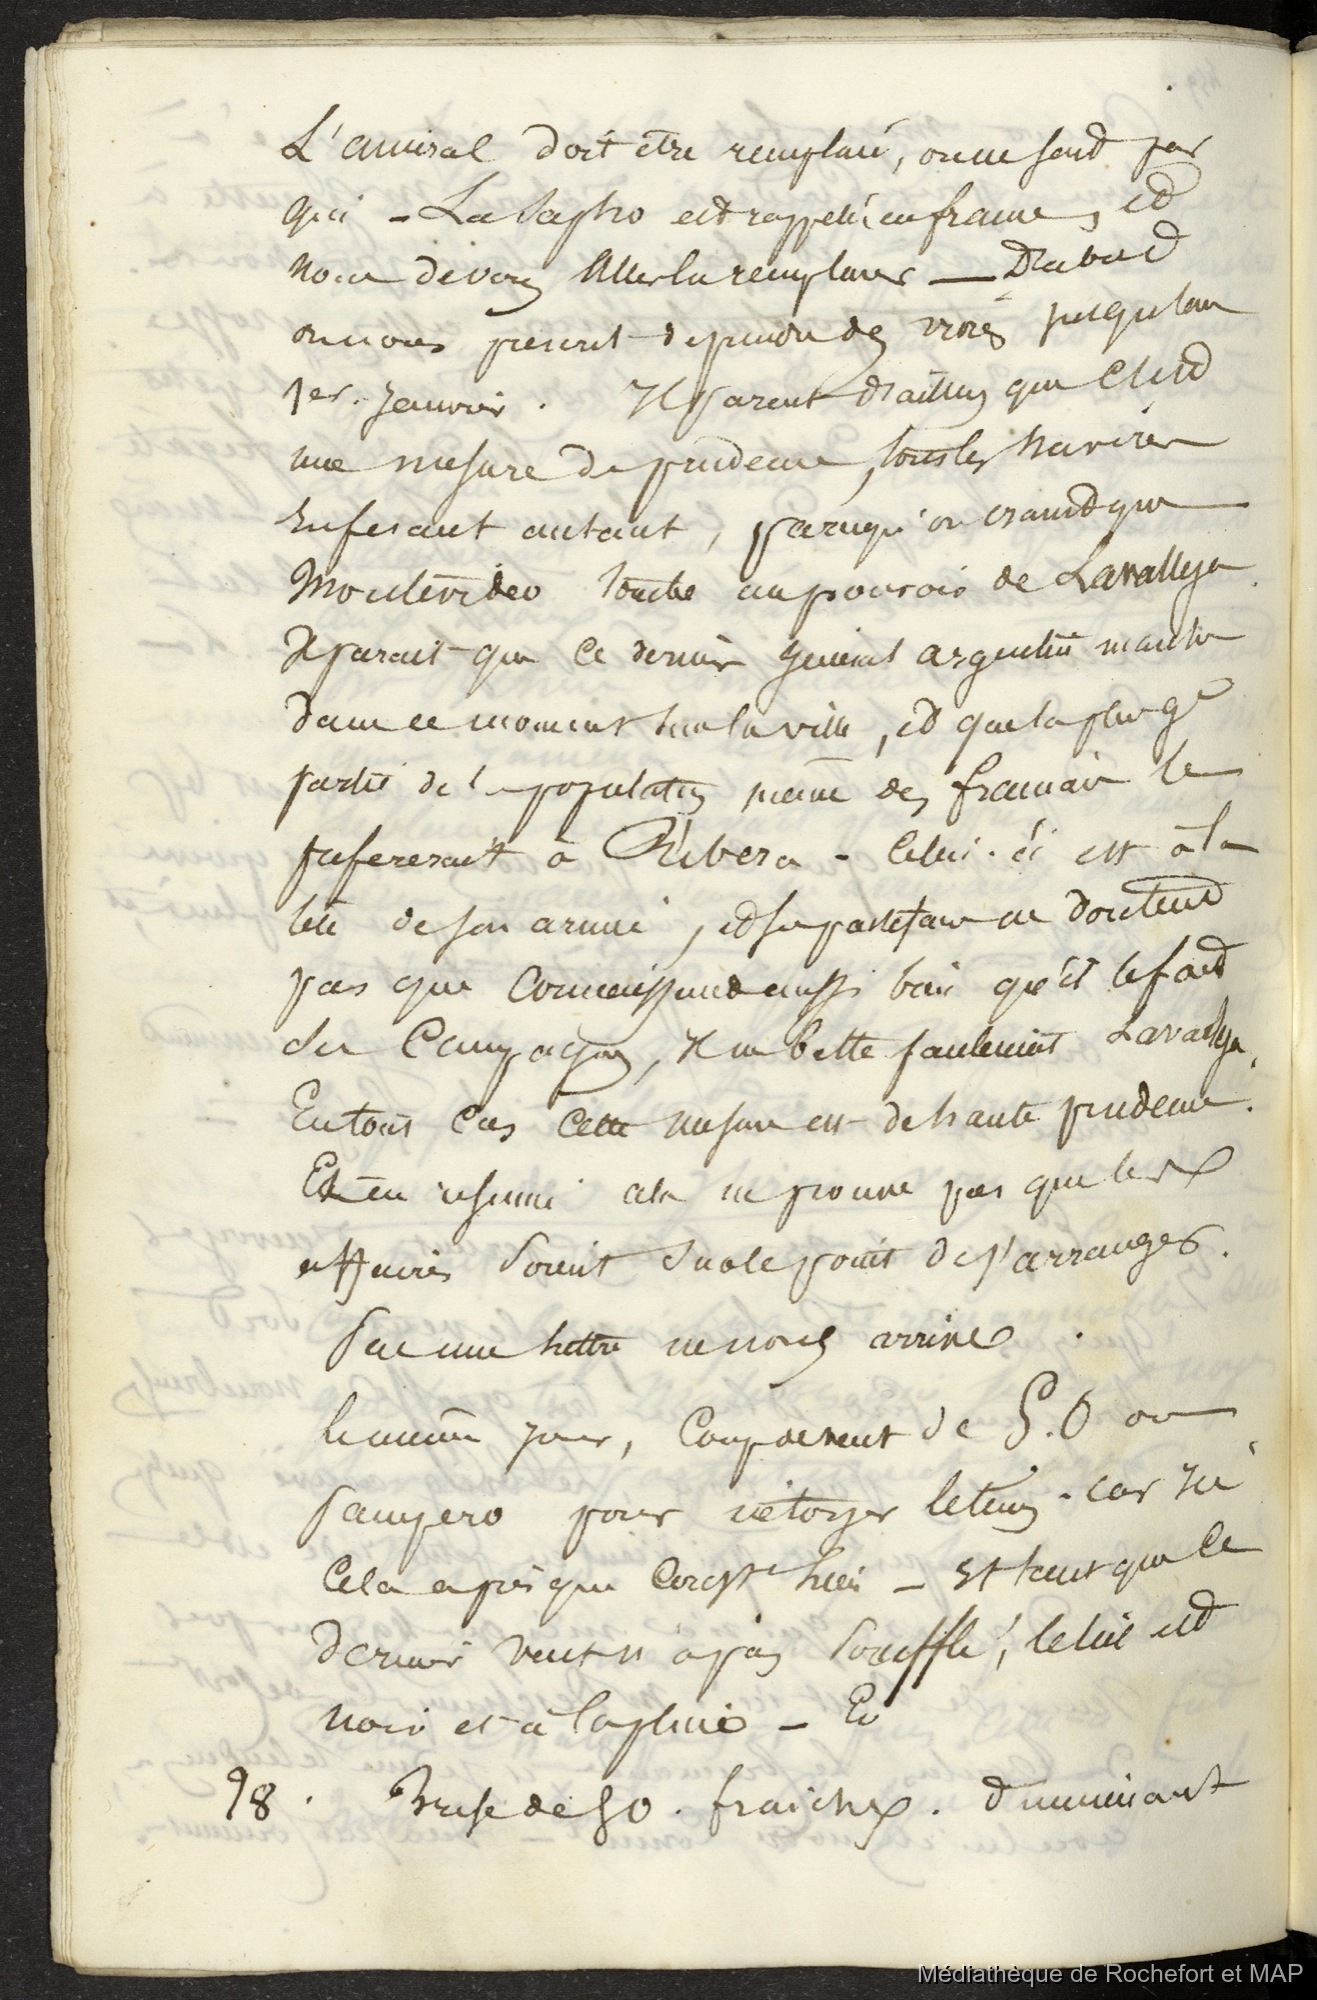 L'amiral doit être remplacé, on ne sait par
qui - La Sapho est rappelé en france, et
nous devons aller la remplacer — D'abord
on nous prescrit de prendre des vivres jusqu'au
1er. Janvier. Il parait d'ailleurs que c'est
une mesure de prudence, tous les navires
en fesant autant, parcequ'on craint que
Montévideo tombe au pouvoir de Lavalleja
Il parait que ce dernier général argentin marche
dans ce moment sur la ville, et que la plus gde
partie de la population même des français le
prefererait à Ribera - Celui-ci est à la
tête de son armée, et ses partisans ne doutent
pas que connaissant aussi bien qu'il le fait
la Campagne, il ne batte Lavalleja.
En tous cas cette mesure est de haute prudence.
Et en resumé cela ne prouve pas que les
affaires soient sur le point de s'arranger.
Pas une lettre ne nous arrive.
le même jour, Coup de vent de S.O ou
Pampero pour nétoyer le tems. car ici
Cela a presque lieu - et tant que ce
dernier vent n'a pas soufflé, le ciel est
noir et à la pluie -
98. Brise de SO. fraiche. diminuant
Médiathèque de Rochefort et MAP